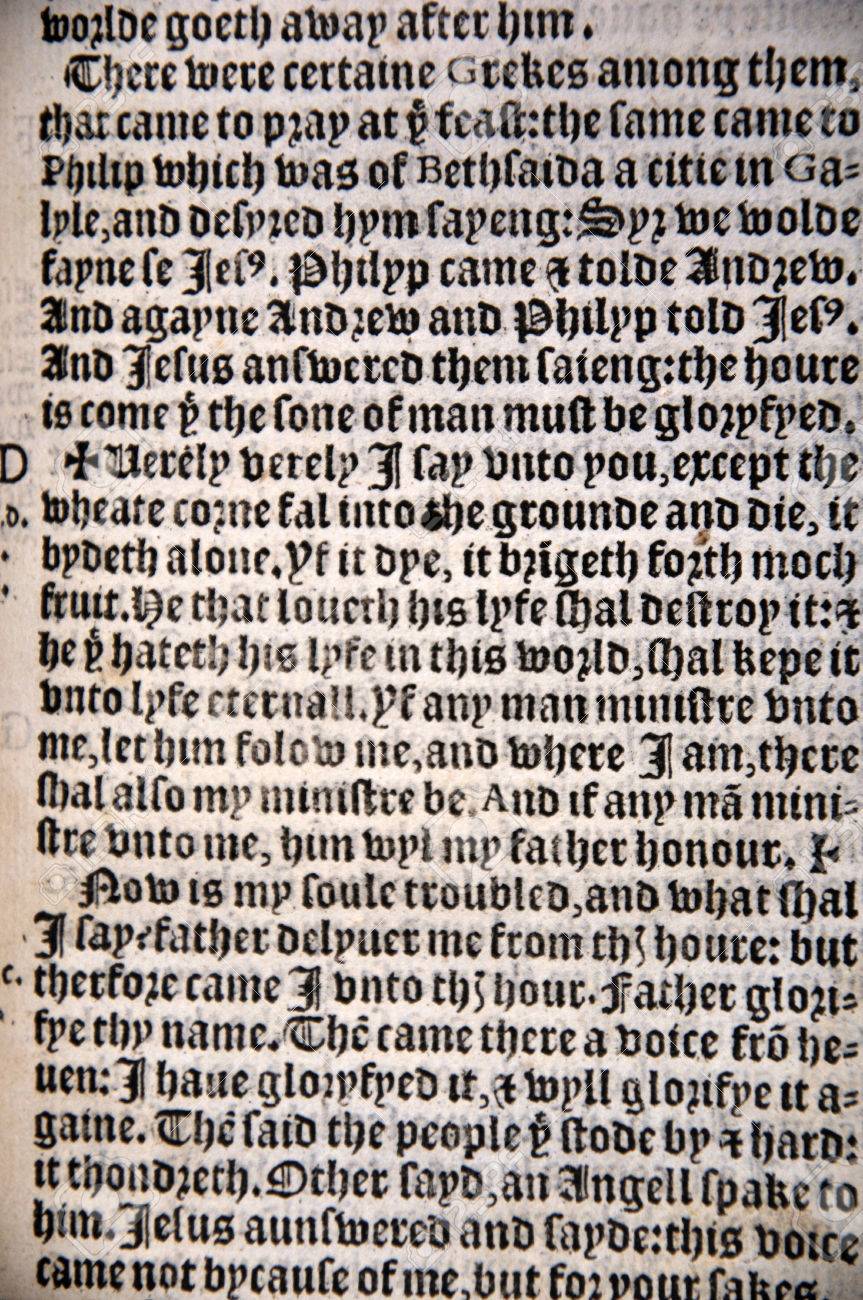 worlde goeth away after him.
There were certaine Grekes among them,
that came to pray at yͤ feast:the same came to
Philip which was of Bethsaida a citie in Ga=
lyle,and desyred hym sayeng:Syr we wolde
fayne se Jesꝰ. Philyp came ⁊ tolde Andrew.
And agayne Andrew and Philyp told Jesꝰ.
And Jesus answered them saieng:the houre
is come yͭ the sone of man must be gloryfyed.
D ✠ Uerely verely I say vnto you,except the
.D. wheate corne fal into the grounde and die, it
bydeth alone.Yf it dye, it brīgeth forth moch
fruit.He that loueth his lyfe shal destroy it:⁊
he yͭ hateth his lyfe in this world,shal kepe it
vnto lyfe eternall.Yf any man ministre vnto
me,let him folow me,and where I am,there
shal also my ministre be.And if any mā mini=
stre vnto me, him wyl my father honour. ✠
Now is my soule troubled,and what shal
I say?father delyuer me from thꝭ houre: but
c. therfore came I vnto thꝭ hour.Father glori=
fye thy name.Thē came there a voice frō he=
uen:I haue gloryfyed it,⁊ wyll glorifye it a=
gaine.Thē said the people yͭ stode by ⁊ hard:
it thondreth.Other sayd,an Angell spake to
him.Jesus aunswered and sayde:this voice
came not bycause of me,but for your sakes.